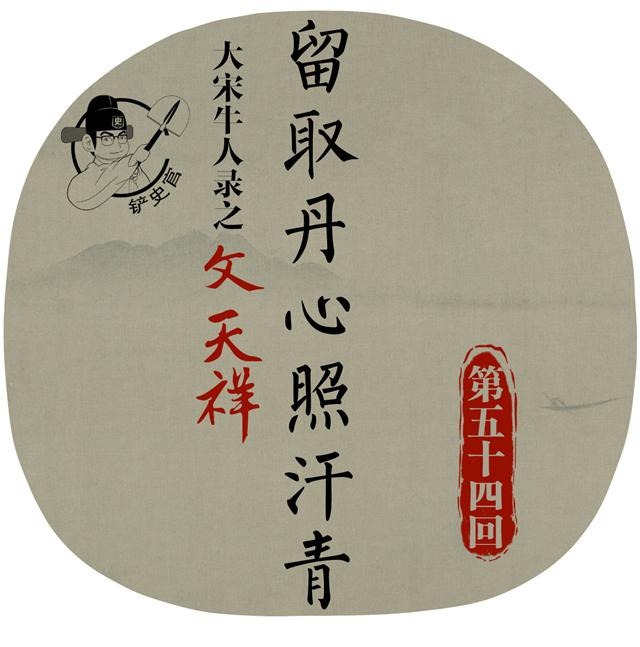 第五十四回
留取丹心照汗青
大宋牛人录之
文天祥
史
铲史官